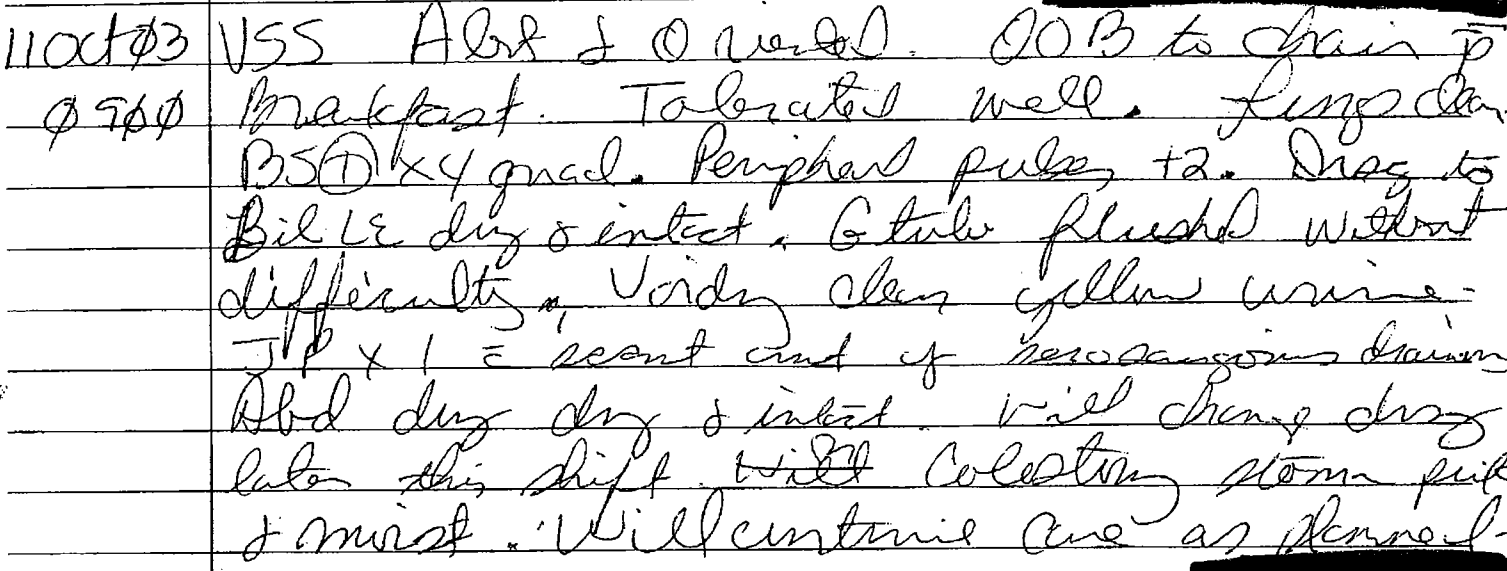 11 Oct 03 VSS Alert & Oriented. OOB to chair p̄
0900 Breakfast. Tolerated well. Lungs clear,
BS⊕ x4 quad. Peripheral pulses +2. Drsg to
Bil LE dry & intact. G tube flushed without
difficulty. Voids clear yellow urine.
JP x 1 c̄ scant amt of serosanguinous drainage
Abd dsg dry & intact. Will change drsg
later this shift. Will Colostomy stoma pink
& moist. Will continue care as planned-